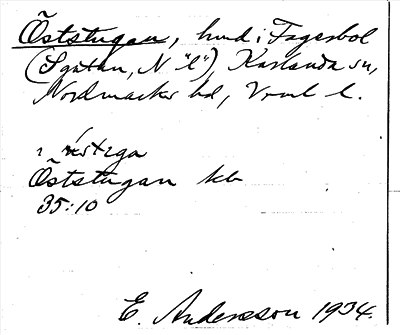 Öststugan, hmd i Fagerbol
(Sgatan, N. "2"), Karlanda sn,
Nordmarks hd, Vrml l.
ı östıga
Öststugan kb
35:10
E. Andersson 1934.